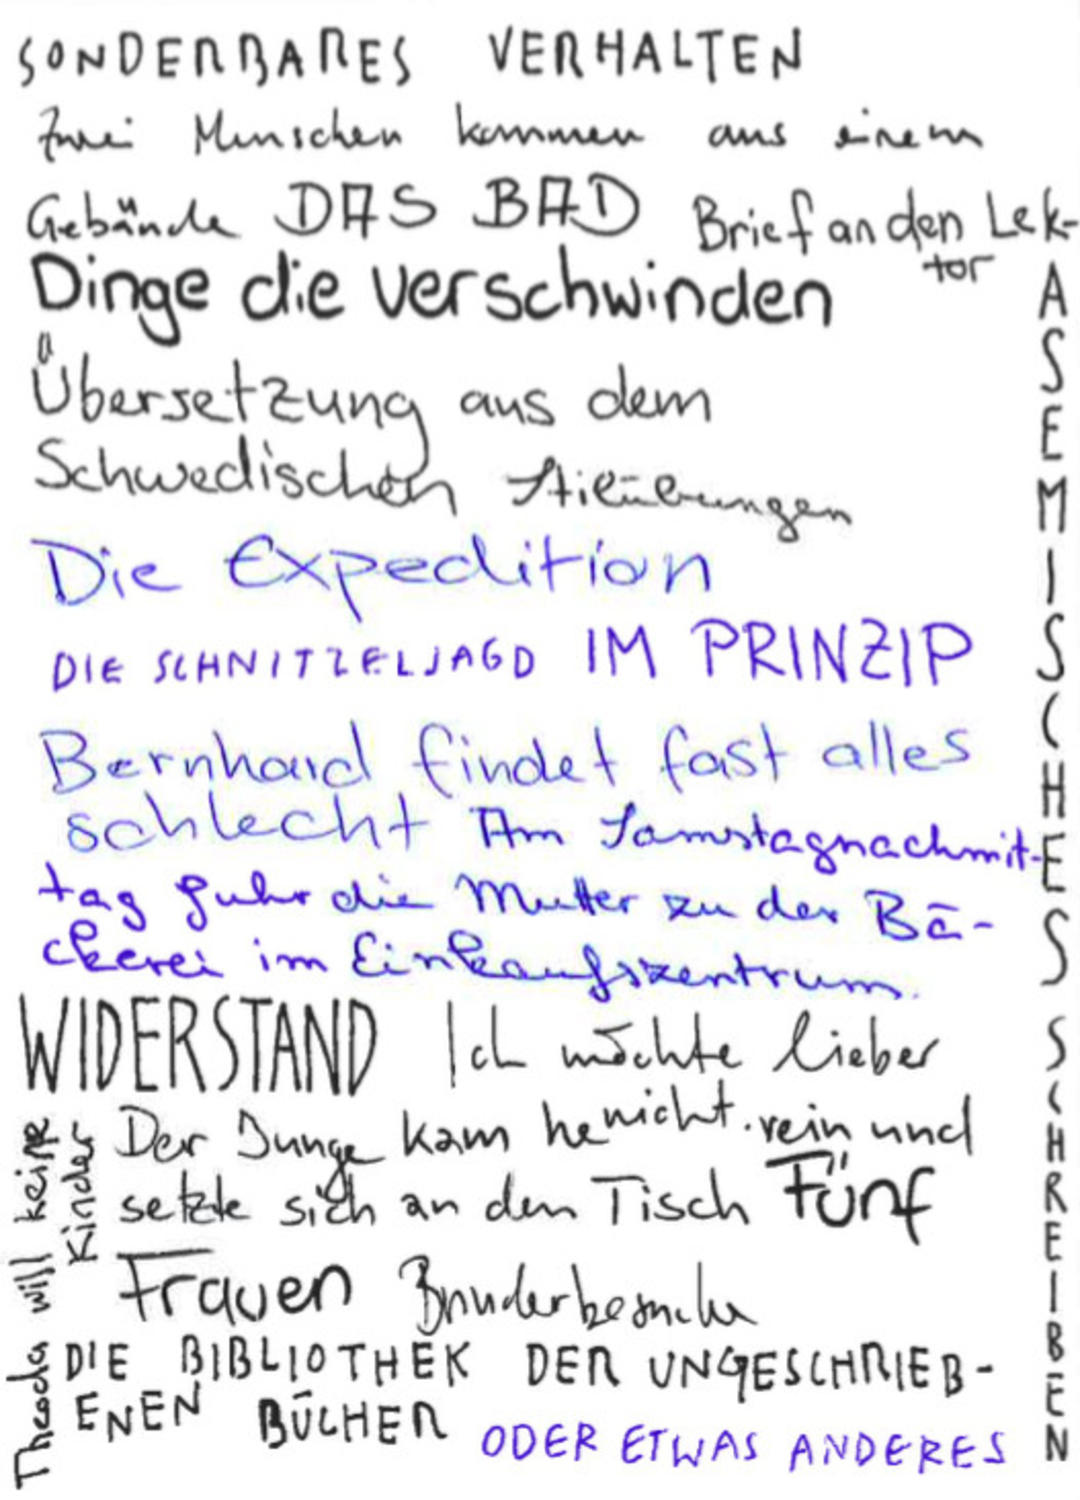 SONDERBARES VERHALTEN
Zwei Menschen kommen aus einem
Gebäude DAS BAD Brief an den Lek-
tor
Dinge die verschwinden
Übersetzung aus dem
Schwedischen Stilübungen
Die Expedition
DIE SCHNITZELJAGD IM PRINZIP
Bernhard findet fast alles
schlecht Am Samstagnachmit-
tag fuhr die Mutter zu der Bä-
ckerei im Einkaufszentrum.
WIDERSTAND Ich möchte lieber
nicht.
Der Junge kam herein und
setzte sich an den Tisch Fünf
Frauen Bruderbesuche
DIE BIBLIOTHEK DER UNGESCHRIEB-
ENEN BÜCHER ODER ETWAS ANDERES
Theoda will keine
Kinder
ASEMISCHES SCHREIBEN